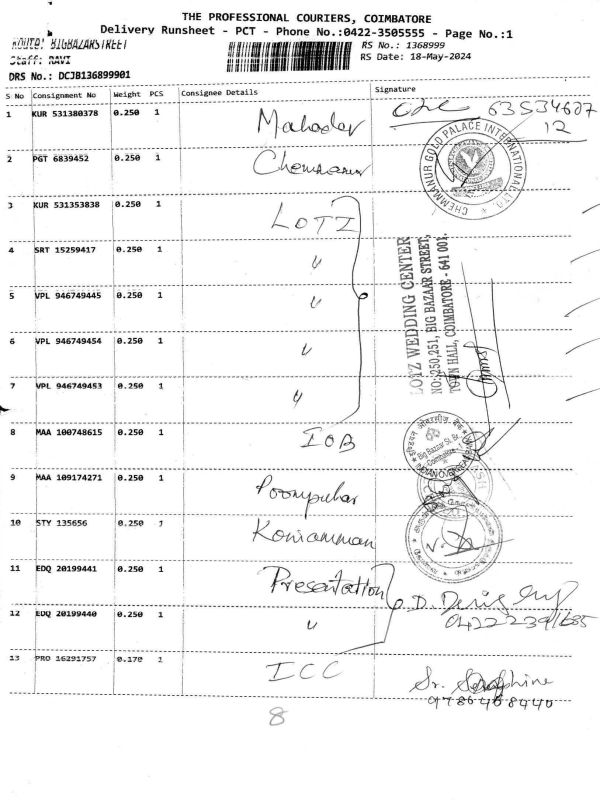 THE PROFESSIONAL COURIERS, COIMBATORE
Delivery Runsheet - PCT - Phone No.:0422-3505555 - Page No.:1
ROUTE: BIGBAZARSTREET
Staff: RAVI
RS No.: 1368999
RS Date: 18-May-2024
DRS No.: DCJB136899901
S No Consignment No Weight PCS Consignee Details Signature
1 KUR 531380378 0.250 1 Mahadev
12
2 PGT 6839452 0.250 1
CHEMMANUR GOLD PALACE INTERNATIONAL LTD
3 KUR 531353838 0.250 1 LOTZ
4 SRT 15259417 0.250 1 〃
5 VPL 946749445 0.250 1 〃
6 VPL 946749454 0.250 1 〃
7 VPL 946749453 0.250 1 〃
LOTZ WEDDING CENTER
NO:250,251, BIG BAZAAR STREET,
TOWN HALL, COIMBATORE - 641 001.
8 MAA 100748615 0.250 1 IOB
Big Bazaar St. Br.
Coimbatore-1
9 MAA 109174271 0.250 1 Poompuhar
10 STY 135656 0.250 1 Koniamman
11 EDQ 20199441 0.250 1 Presentation
12 EDQ 20199440 0.250 1 〃
13 PRO 16291757 0.170 1 ICC
Sr. Seraphine
9786468440
8